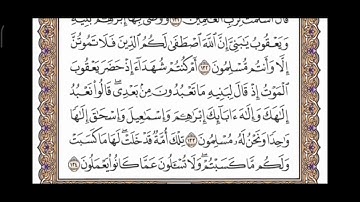 قَالَ أَسْلَمْتُ لِرَبِّ الْعَٰلَمِينَ ١٣١ وَوَصَّىٰ بِهَا إِبْرَٰهِۦمُ بَنِيهِ
وَيَعْقُوبُ يَٰبَنِىَّ إِنَّ ٱللَّهَ ٱصْطَفَىٰ لَكُمُ ٱلدِّينَ فَلَا تَمُوتُنَّ
إِلَّا وَأَنتُم مُّسْلِمُونَ ١٣٢ أَمْ كُنتُمْ شُهَدَآءَ إِذْ حَضَرَ يَعْقُوبَ
ٱلْمَوْتُ إِذْ قَالَ لِبَنِيهِ مَا تَعْبُدُونَ مِنۢ بَعْدِى قَالُوا۟ نَعْبُدُ
إِلَٰهَكَ وَإِلَٰهَ ءَابَآئِكَ إِبْرَٰهِۦمَ وَإِسْمَٰعِيلَ وَإِسْحَٰقَ إِلَٰهًا
وَٰحِدًا وَنَحْنُ لَهُۥ مُسْلِمُونَ ١٣٣ تِلْكَ أُمَّةٌ قَدْ خَلَتْ ۖ لَهَا مَا كَسَبَتْ
وَلَكُم مَّا كَسَبْتُمْ ۖ وَلَا تُسْـَٔلُونَ عَمَّا كَانُوا۟ يَعْمَلُونَ ١٣٤